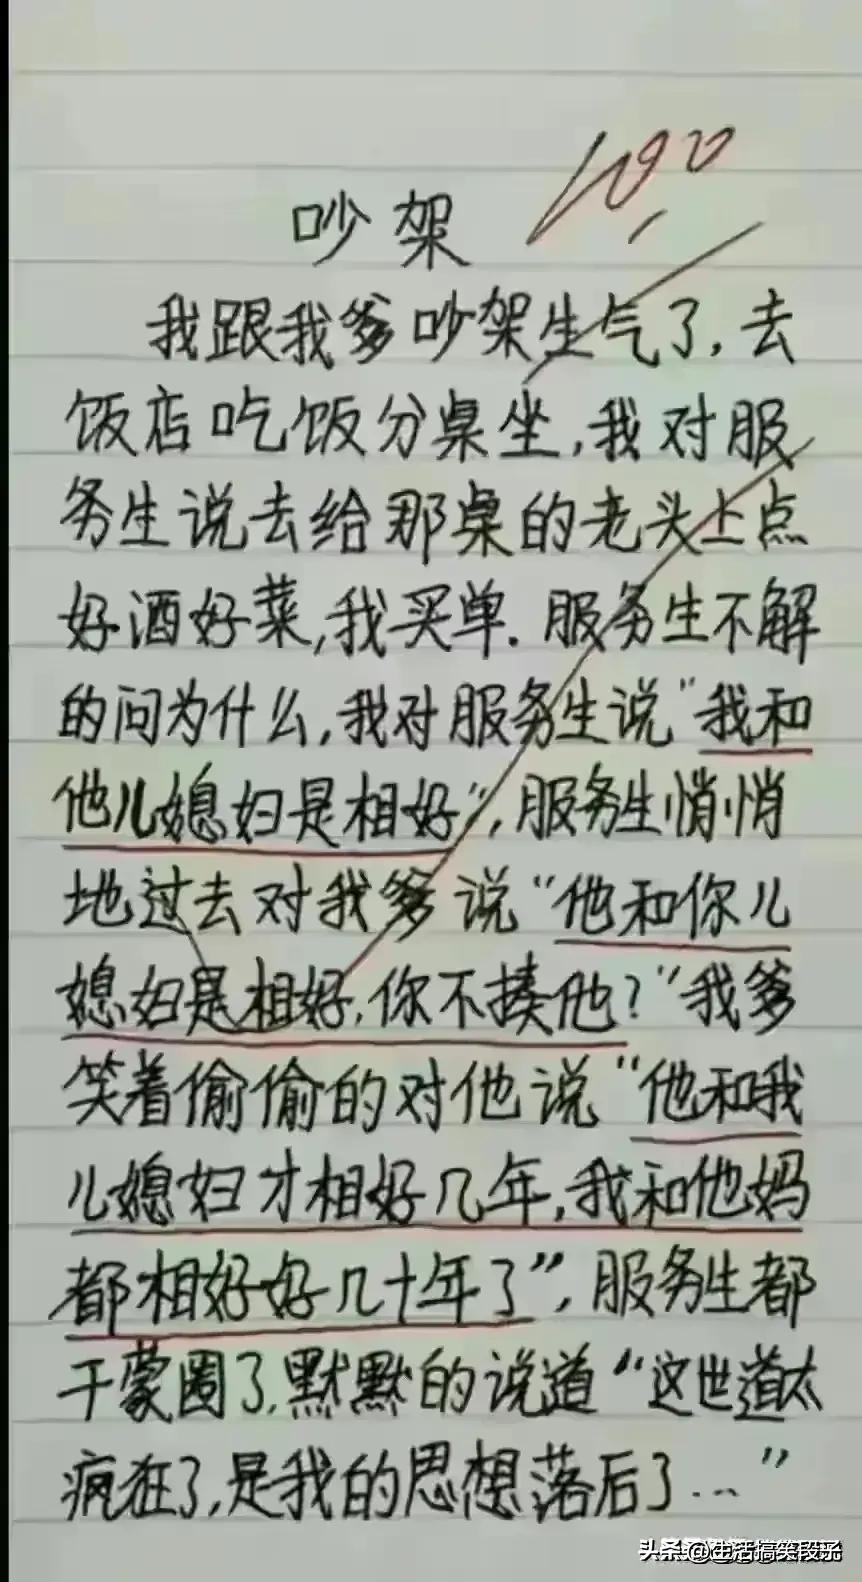 100
吵架
我跟我爹吵架生气了,去
饭店吃饭分桌坐,我对服
务生说去给那桌的老头上点
好酒好菜,我买单.服务生不解
的问为什么,我对服务生说"我和
他儿媳妇是相好",服务生悄悄
地过去对我爹说"他和你儿
媳妇是相好,你不揍他?"我爹
笑着偷偷的对他说"他和我
儿媳妇才相好几年,我和他妈
都相好好几十年了",服务生都
干蒙圈了.默默的说道"这世道太
疯狂了,是我的思想落后了..."
头条@生活搞笑段子